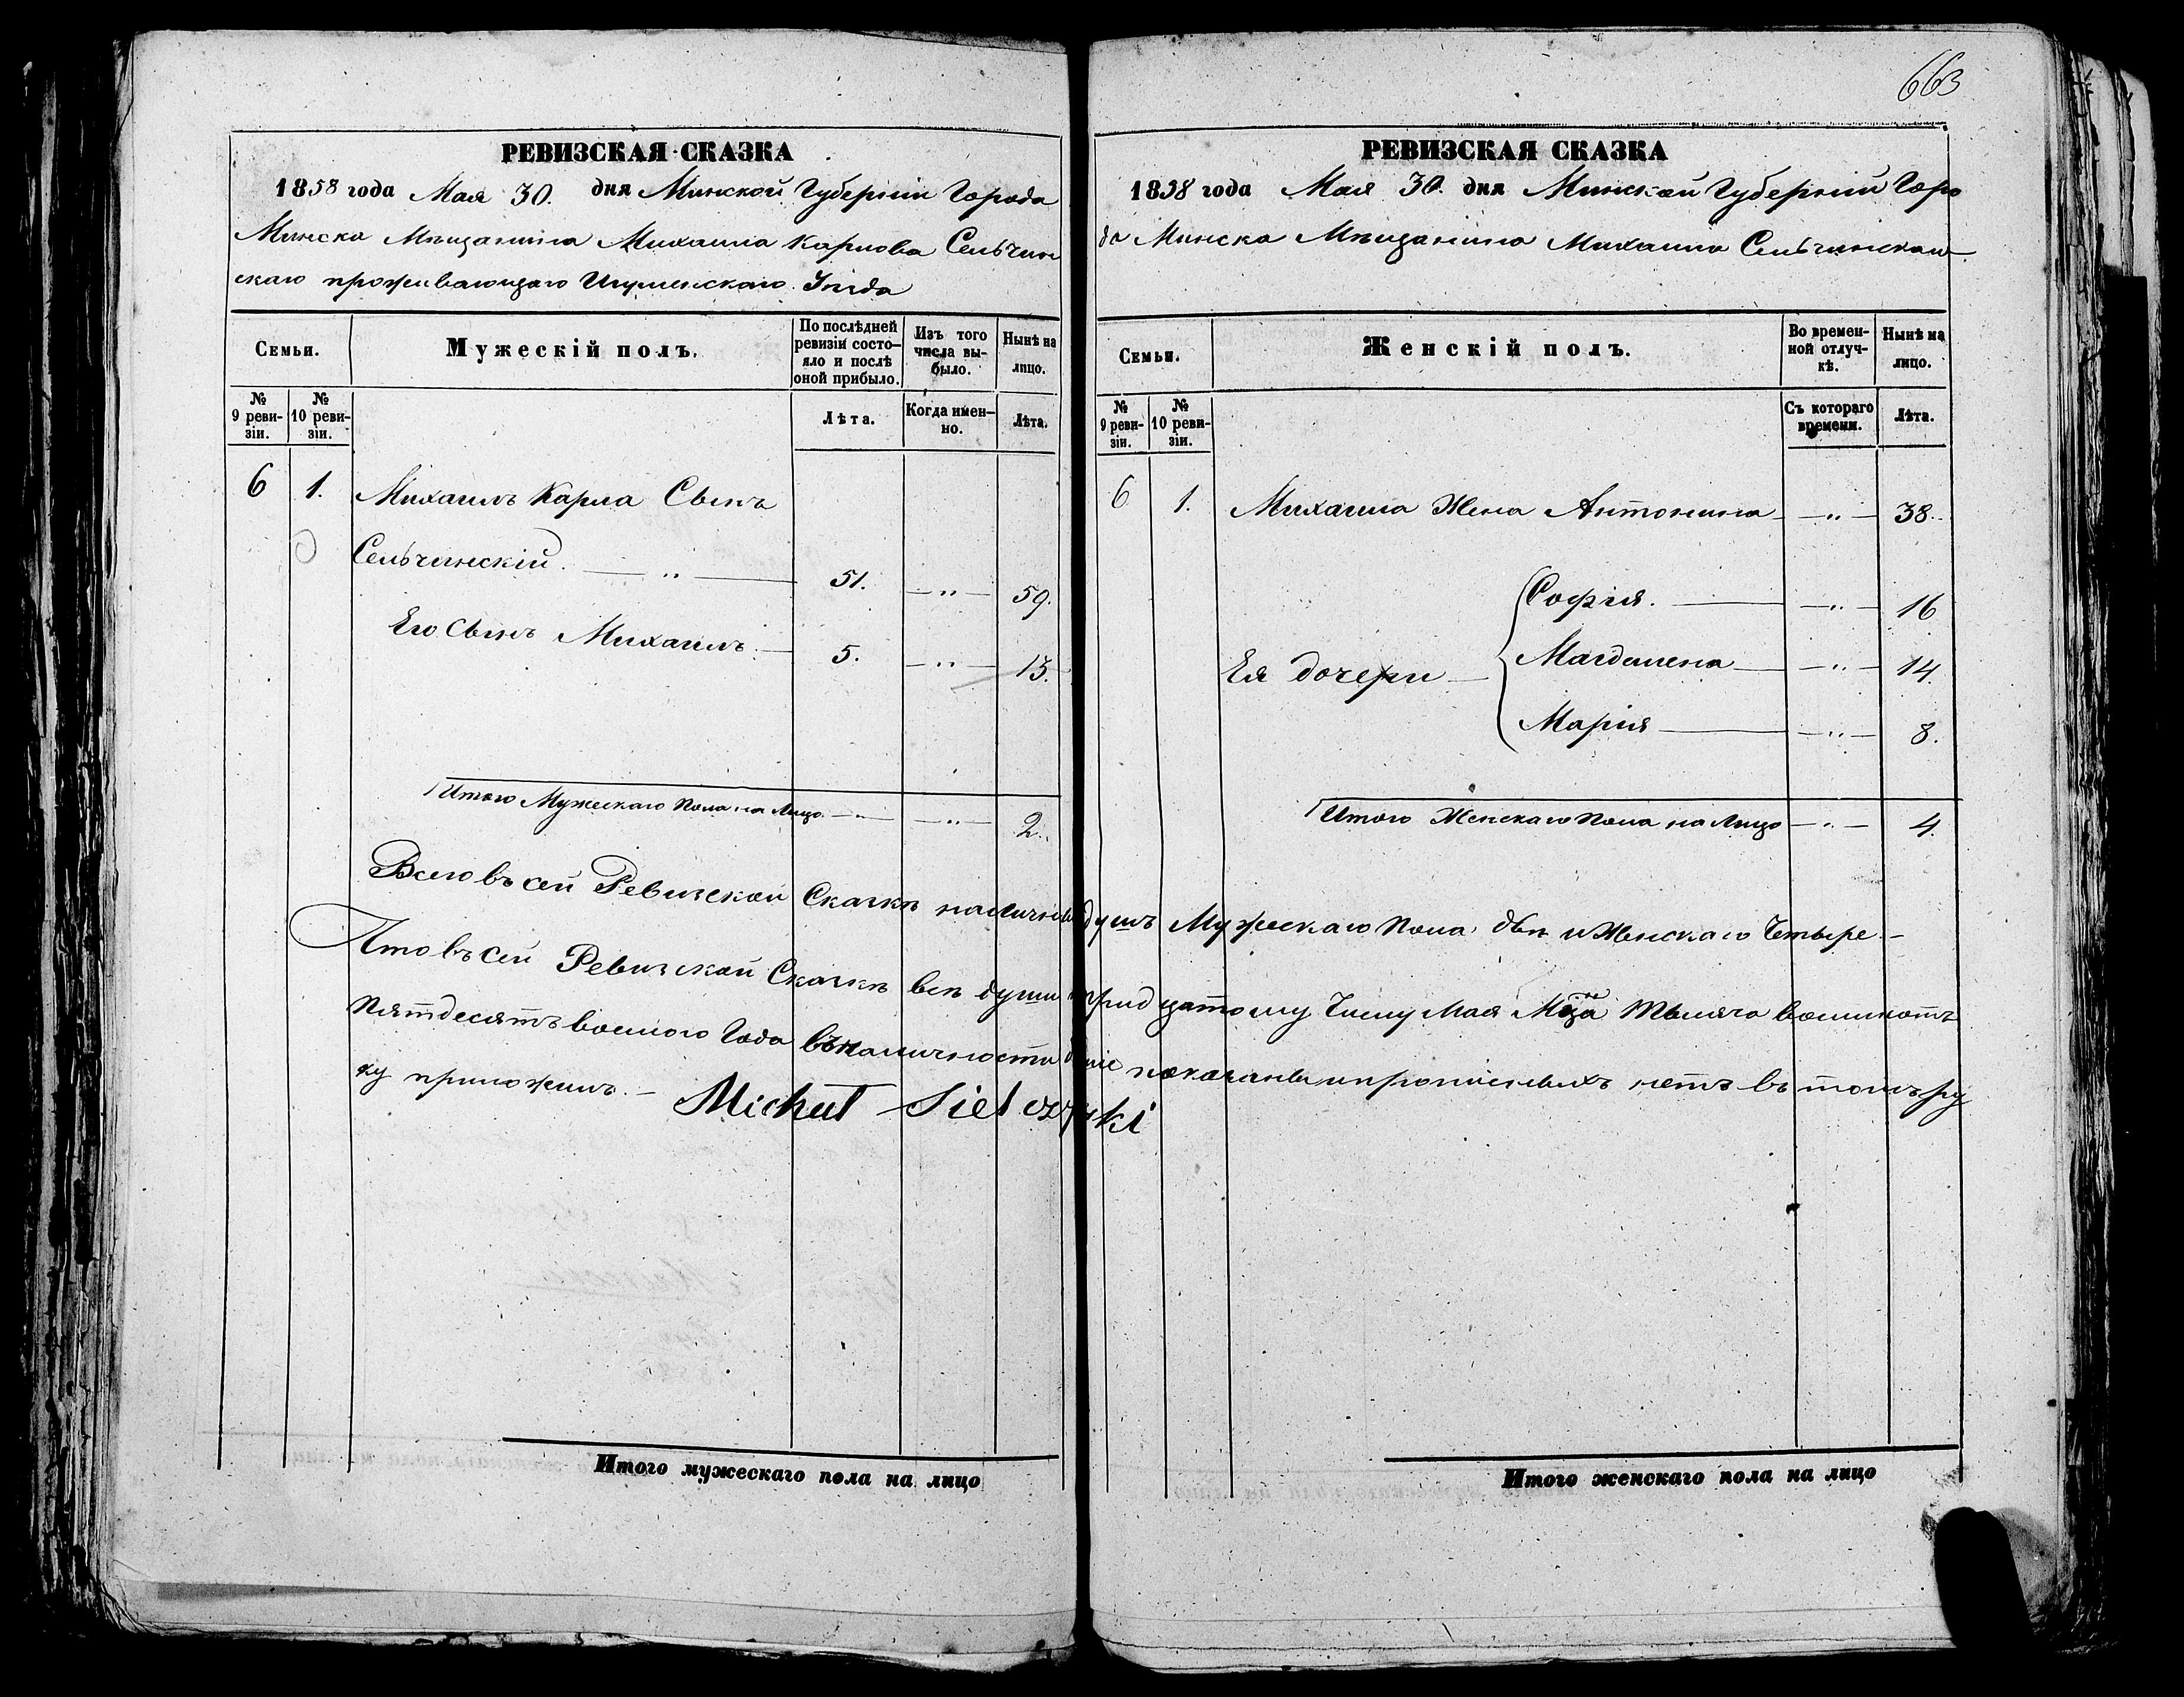 663
РЕВИЗСКАЯ СКАЗКА
1858 года Мая 30. дня Минской Губерніи Города
Минска Мѣщанина Михаила Карлова Сельчин
скаго проживающаго Игуменскаго Уѣзда
Семьи.
Мужескій полъ.
По послѣдней ревизіи состо-
яло и послѣ оной прибыло.
Изъ того числа вы-
было.
Нынѣ на лицо.
№ 9 реви-
зіи.
№ 10 реви-
зіи.
Лѣта.
Когда имен-
но.
Лѣта.
6 1. Михаилъ Карла Сынъ
Сельчинскій. — „ — 51. — „ — 59.
Его Сынъ Михаилъ — 5. — „ — 13.
Итого Мужескаго Пола на Лицо — „ — — „ — 2.
РЕВИЗСКАЯ СКАЗКА
1858 года Мая 30. дня Минской Губерніи Горо
да Минска Мѣщанина Михаила Сельчинскаго
Семьи.
Женскій полъ.
Во времен-
ной отлуч-
кѣ.
Нынѣ на лицо.
№ 9 реви-
зіи.
№ 10 реви-
зіи.
Съ котораго времени.
Лѣта.
6 1. Михаила Жена Антонина — „ — 38.
София. — „ — 16
Ея дочери — Магдалена — „ — 14.
Марія — „ — 8.
Итого Женскаго Пола на Лицо — „ — 4.
Всего въ сей Ревизской Сказкѣ наличныхъ душъ Мужескаго Пола двѣ и Женскаго Четыре. —
Что въ сей Ревизской Сказкѣ всѣ души тридцатому Числу Мая Мца Тысяча восимсотъ
Пятдесятъ восмого Года въ наличности показаны и прописныхъ нетъ въ томъ ру
ку приложилъ. — Michał Sielczyński
Итого мужескаго пола на лицо
Итого женскаго пола на лицо